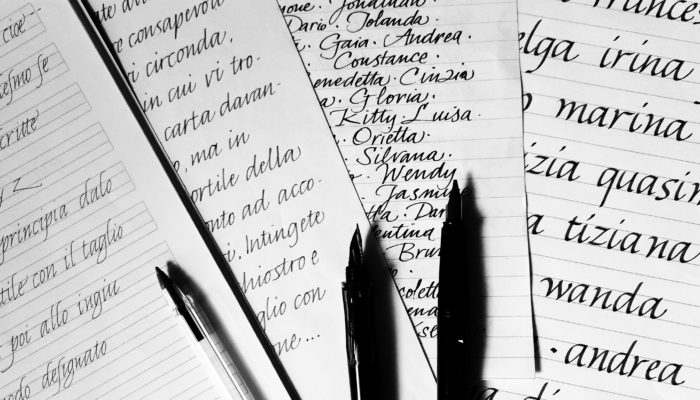 cioe
se
critte
yz
principia dalo
tile con il taglio
poi allo ingiu
odo designato
consapevoli
i circonda.
in cui vi tro-
carta davan-
ma in
ortile della
ad acco-
i. Intingete
hiostro e
glio con
ne...
Jonathan
Dario · Jolanda ·
Gaia · Andrea ·
Constance ·
enedetta · Cinzia
Gloria ·
Kitty · Luisa ·
Orietta ·
Silvana ·
Wendy
Jasmine
entina
colett
irina
marina
izia quasim
a tiziana
wanda
· andrea